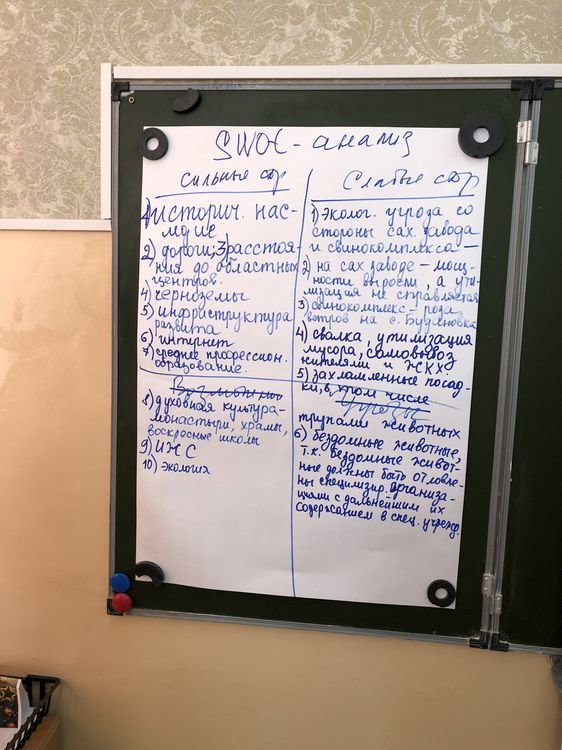 SWOT - анализ
Сильные стор
1) историч. нас-
ледие
2) дороги; 3) расстоя-
ния до областных
центров.
4) черноземы
5) инфраструктура
развита
6) интернет
7) среднее професссион.
образование.
Возможно
8) духовная культура-
монастыри, храмы,
воскресные школы
9) ИЖС
10) экология
Слабые стор
1) Эколог. угроза со
стороны сах. завода
и свинокомплекса -
2) на сах заводе - мощ-
ности выросли, а ути-
лизация не справляется
3) свинокомплекс - роза
ветров на с. Будяновка
4) свалка, утилизация
мусора, самовывоз
жителями и ЖКХ
5) захламленные посад-
ки, в том числе
Угрозы
трупами животных
6) бездомные животные,
т.к. бездомные живот-
ные должны быть отловле-
ны специализир. организа-
циями с дальнейшим их
содержанием в спец. учрежд.